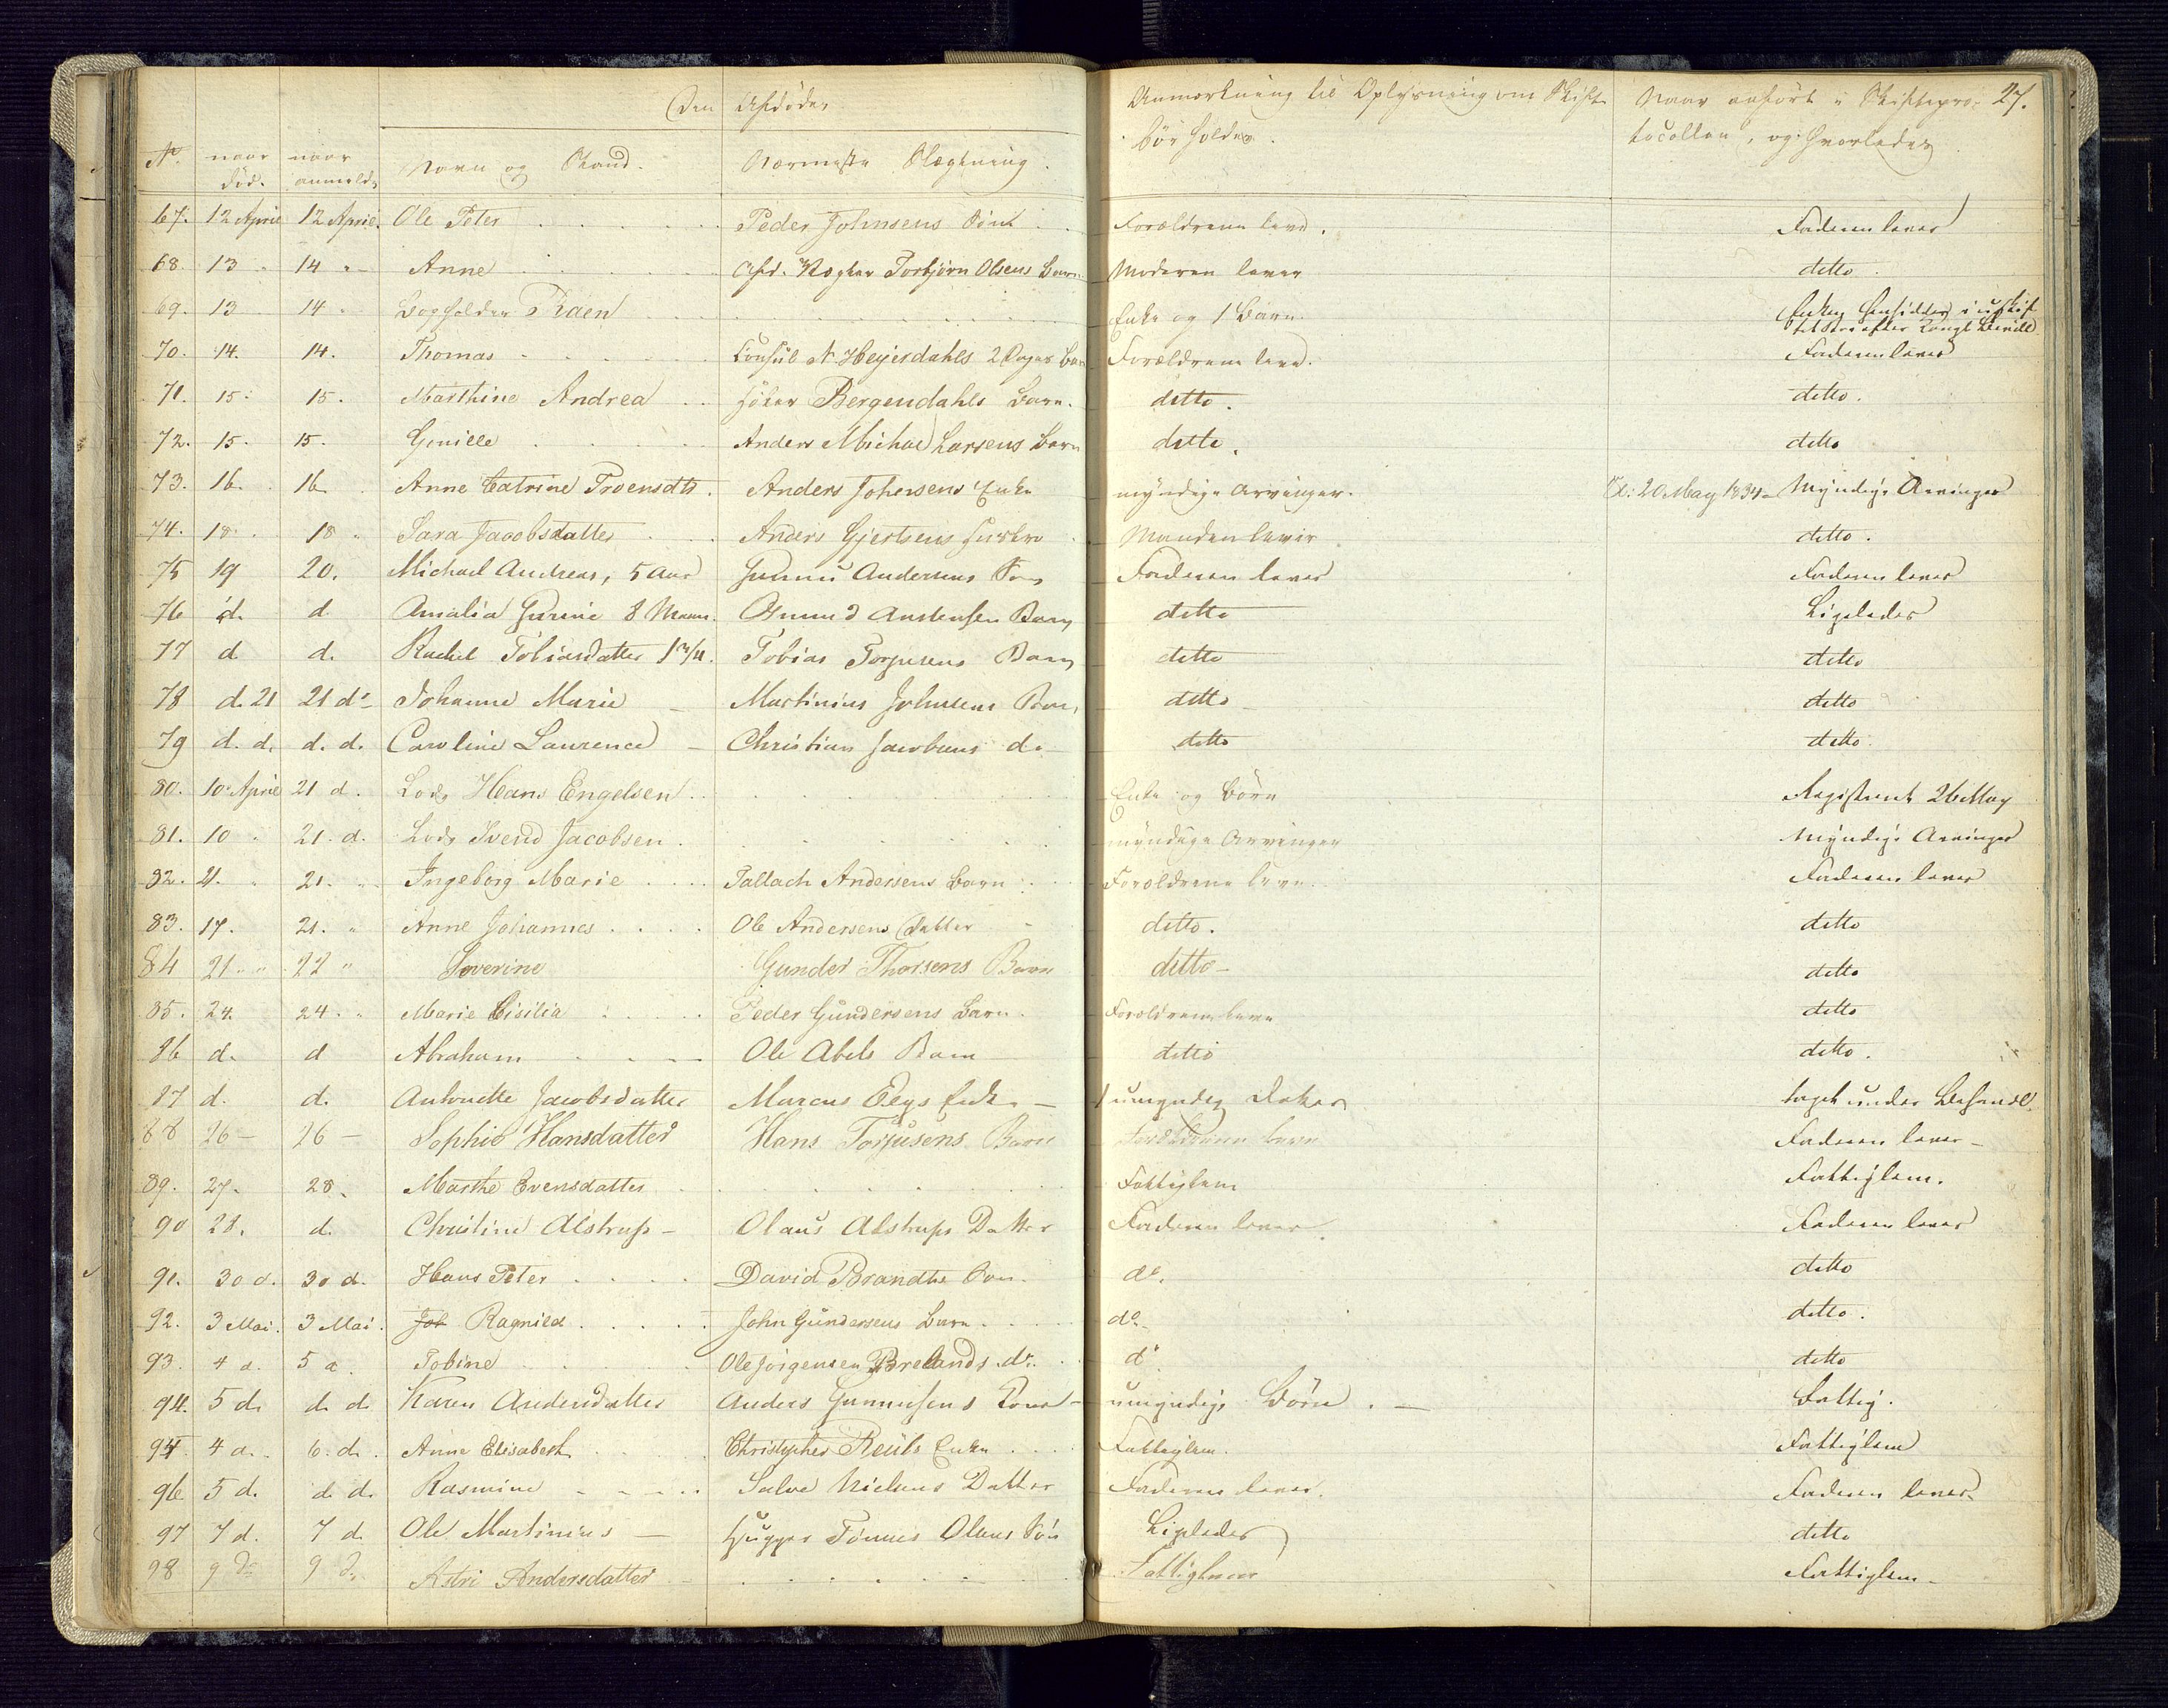 Den Afdødes
Anmærkning til Oplysning om Skifte
Naar anført i Skiftepro- 27.
bør holdes.
tocollen, og hvorledes
No. naar død. naar anmeldt Navn og Stand. Nærmeste Slægtning.
67. 12 April 12 April. Ole Peter Peder Johnsens Søn Forældrene leve. Faderen lever
68. 13 14 Anne Afd. Vægter Torbjørn Olsens Barn Moderen lever ditto
69. 13 14 Bogholder Thaen Enke og 1 Barn. Enken hensidder i uskif-
tet Bo efter Kongl Bevill
70. 14. 14. Thomas Consul N. Heyerdahls 2 Dages Barn Forældrene leve. Faderen lever
71. 15. 15. Marthine Andrea Høker Bergendahls Barn. ditto. ditto.
72. 15. 15. Gunille Anders Michael Larsens Barn ditto. ditto
73. 16. 16. Anne Catrine Troensdtr. Anders Johnsens Enke myndige Arvinger. d: 20 May 1834 - Myndige Arvinger
74. 18. 18 Sara Jacobsdatter Anders Gjertsens Hustro Manden lever ditto.
75 19 20. Michael Andreas, 5 Aar Gunnu Andersens Søn Faderen lever Faderen lever
76 d. d. Amalia Gurine 8 Maan. Osmund Anstensen Barn ditto Ligeledes
77 d d. Rachel Tobiasdatter 1 Tobias Torjusens Barn ditto ditto
78 d. 21 21 do Johanne Marie Martinius Johnsens Barn ditto ditto
79 d. d. d. d. Caroline Laurence Christian Jacobsens do ditto ditto.
80. 10 April 21 d. Lods Hans Engelsen Enke og Børn Registreret 26 May
81. 10 21. d. Lods Svend Jacobsen. myndige Arvinger Myndige Arvinger
82. 21. 21. Ingeborg Marie Tallach Andersens Barn Forældrene leve. Faderen lever
83. 17. 21. Anne Johannes Ole Andersens Datter ditto. ditto
84 21 22 Severine Gunder Thorsens Barn ditto ditto
85. 24. 24. Marie Cisilia Peder Gundersens Barn. Forældrene leve ditto
86 d. d Abraham Ole Abels Barn ditto ditto.
87 d. d. Antonette Jacobsdatter Marcus Enke 1 umyndig Datter taget under Behandl.
88 26 26 Sophie Hansdatter Hans Torjusens Barn Forældrene leve Faderen lever
89. 27. 28. Marthe Evensdatter Fattiglem Fattiglem.
90 28. d. Christine Alstrup Olaus Alstrups Datter Faderen lever Faderen lever
91. 30 d. 30 d. Hans Peter David Brandts Søn do. ditto
92. 3 Mai. 3 Mai. Joh Ragnild John Gundersens Barn do ditto.
93. 4 d. 5 d. Tobine Ole Jörgensen Brelands do. do ditto
94. 5 d. d. d. Karen Andersdatter Anders Gunnusens Kone umyndige Børn. Fattig.
94. 4 d. 6. d. Anne Elisabeth Christopher Enke Fattiglem. Fattiglem
96 5 d. d. d. Rasmine Salve Nielsens Datter Faderen lever. Faderen lever
97 7 d. 7 d. Ole Martinius Hugger Tönnes Olsens Søn Ligeledes ditto
98 9 do 9 do. Astri Andersdatter Fattiglem Fattiglem